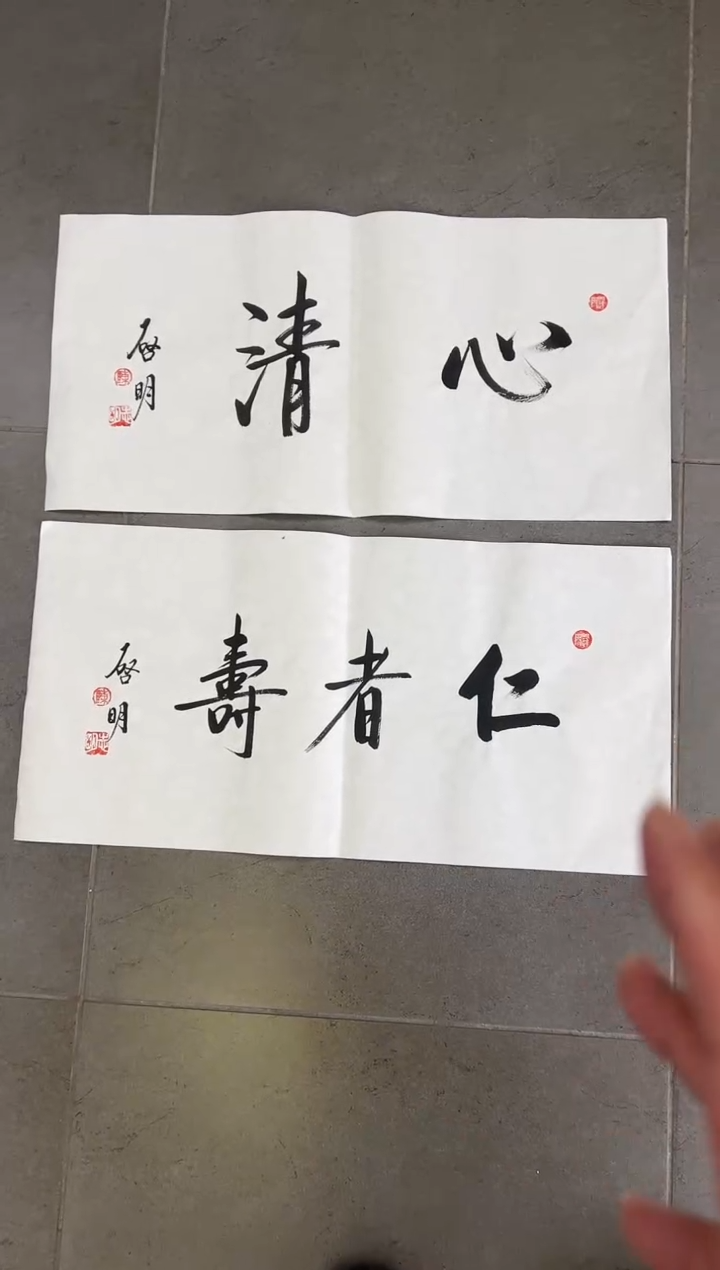 心清
启明
仁者壽
启明